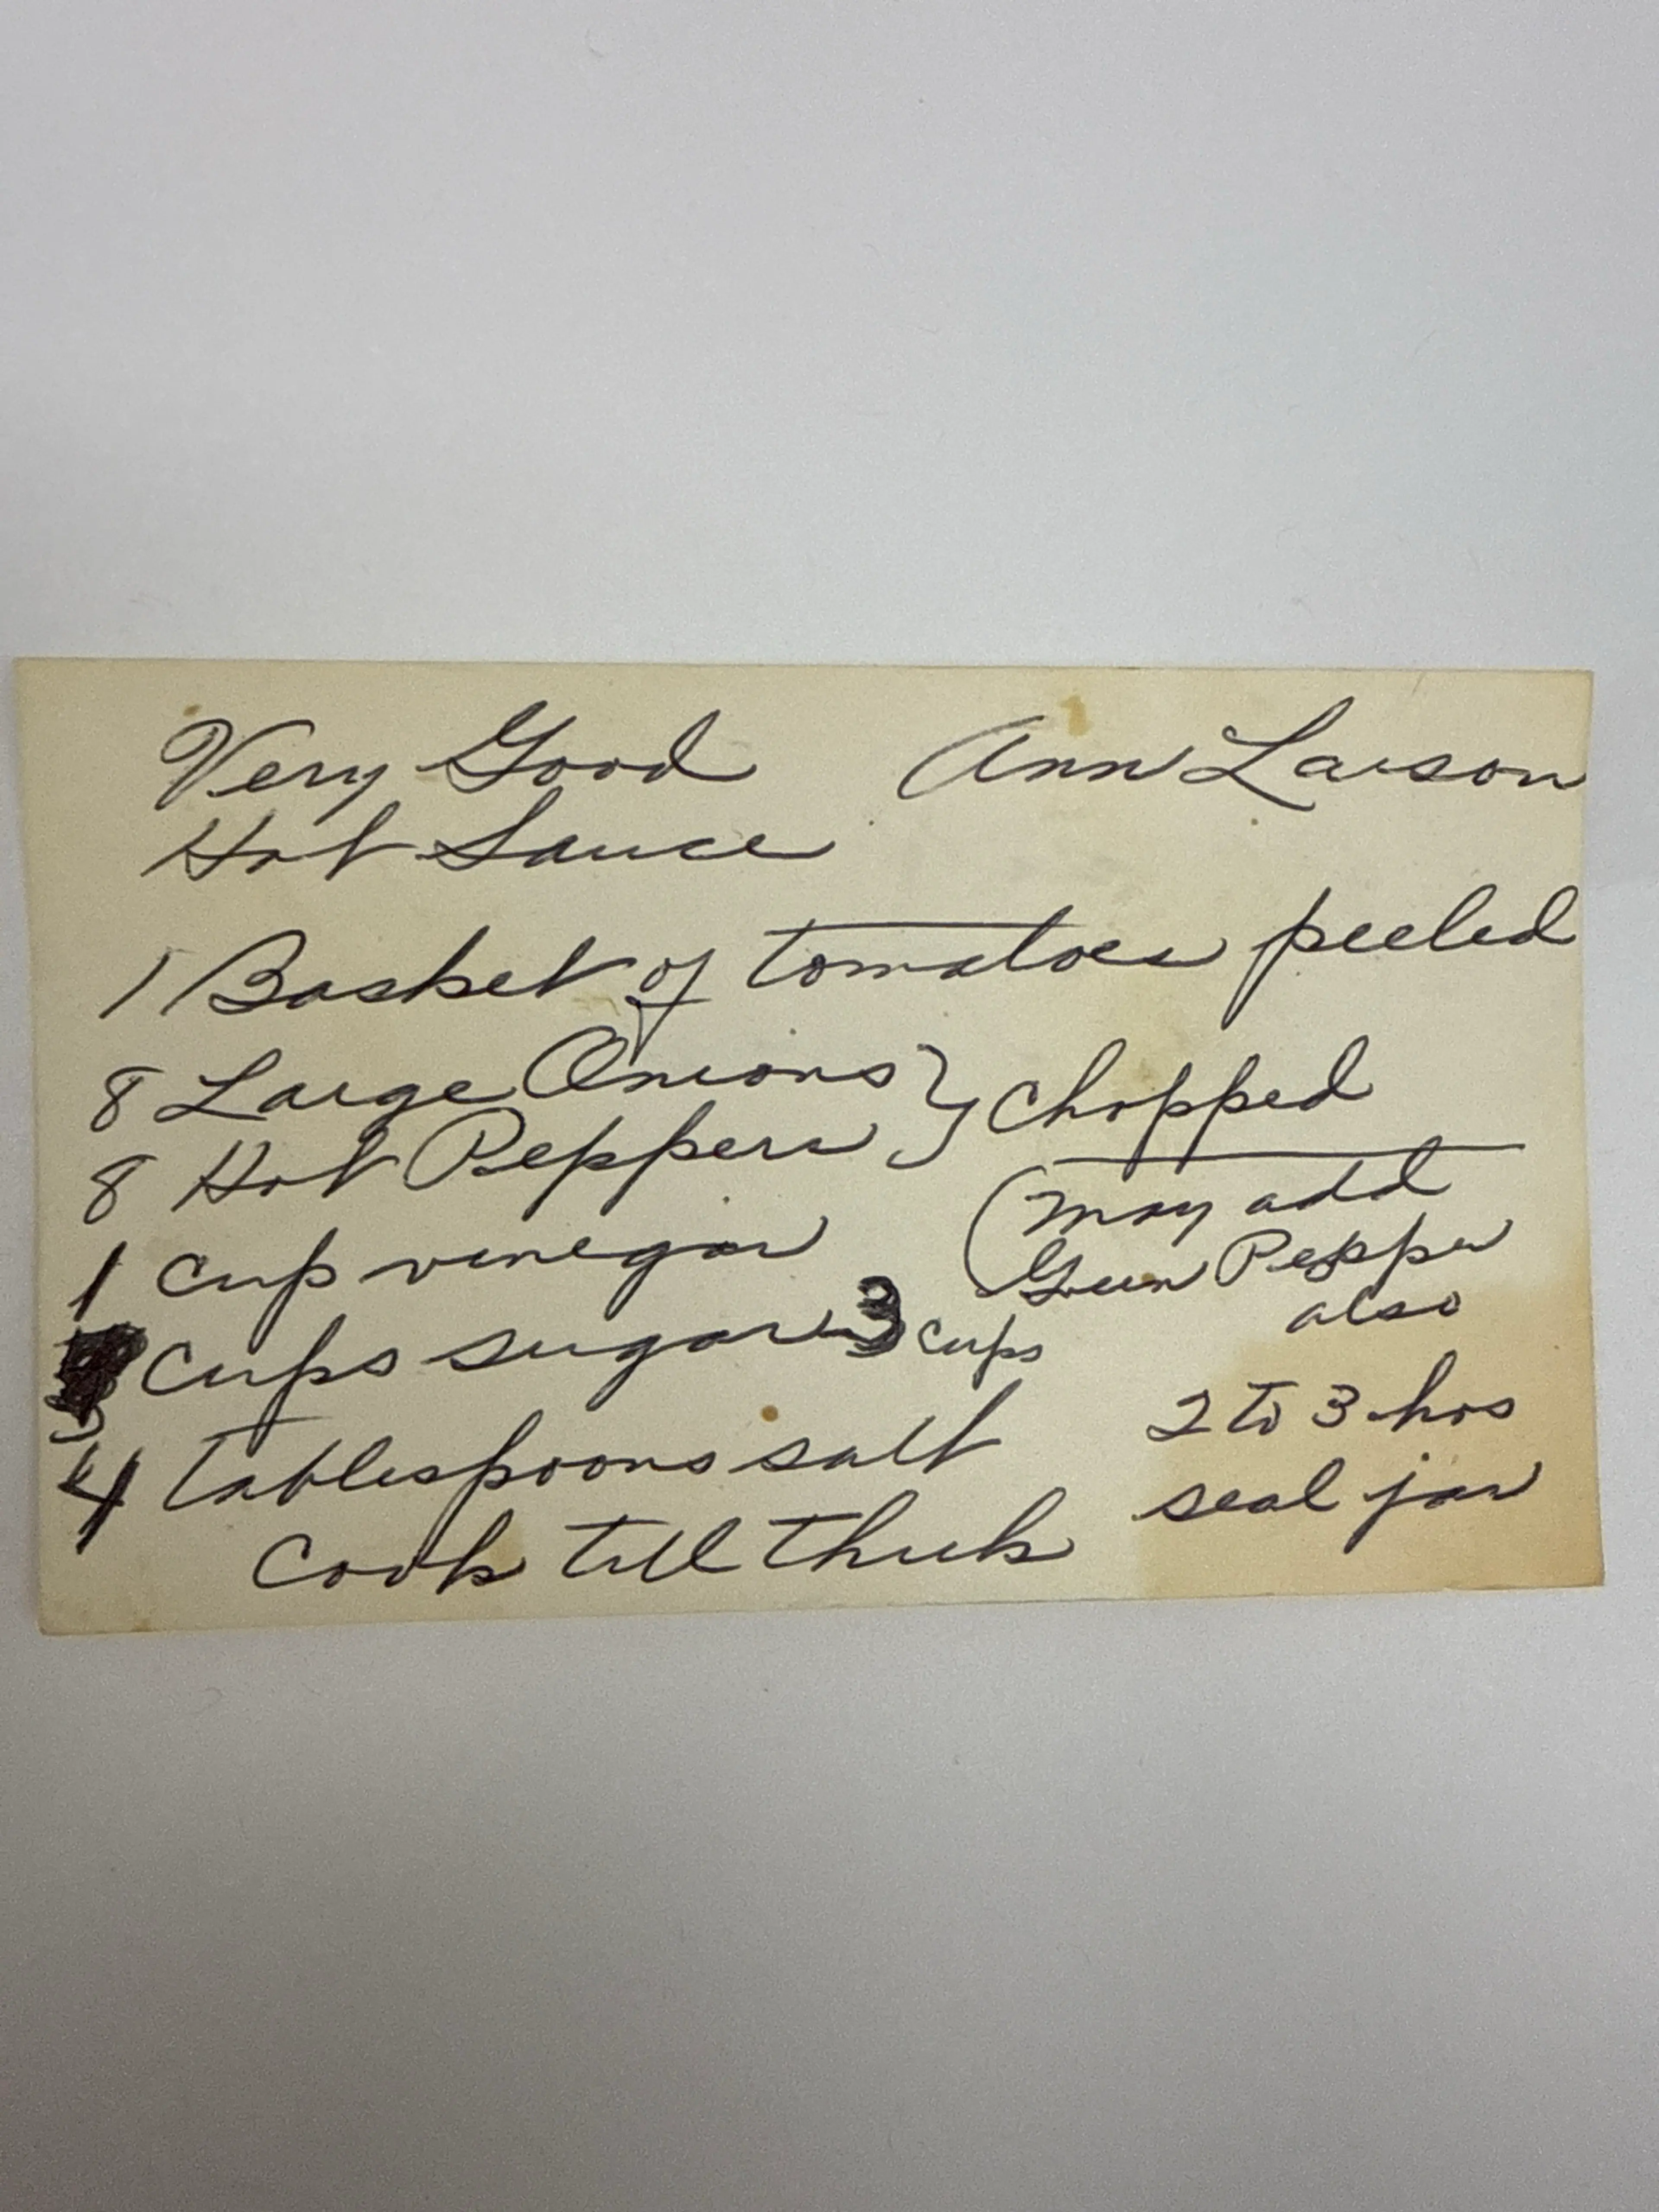 Very Good Ann Larson
Hot Sauce
1 Basket of tomatoes peeled
8 Large Onions } chopped
8 Hot Peppers
(may add
Green Pepper
also
1 cup vinegar
cups sugar 3 cups
3
4 tablespoons salt
2 to 3 hrs
Cook till thick
seal jar